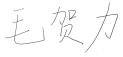 毛贺力